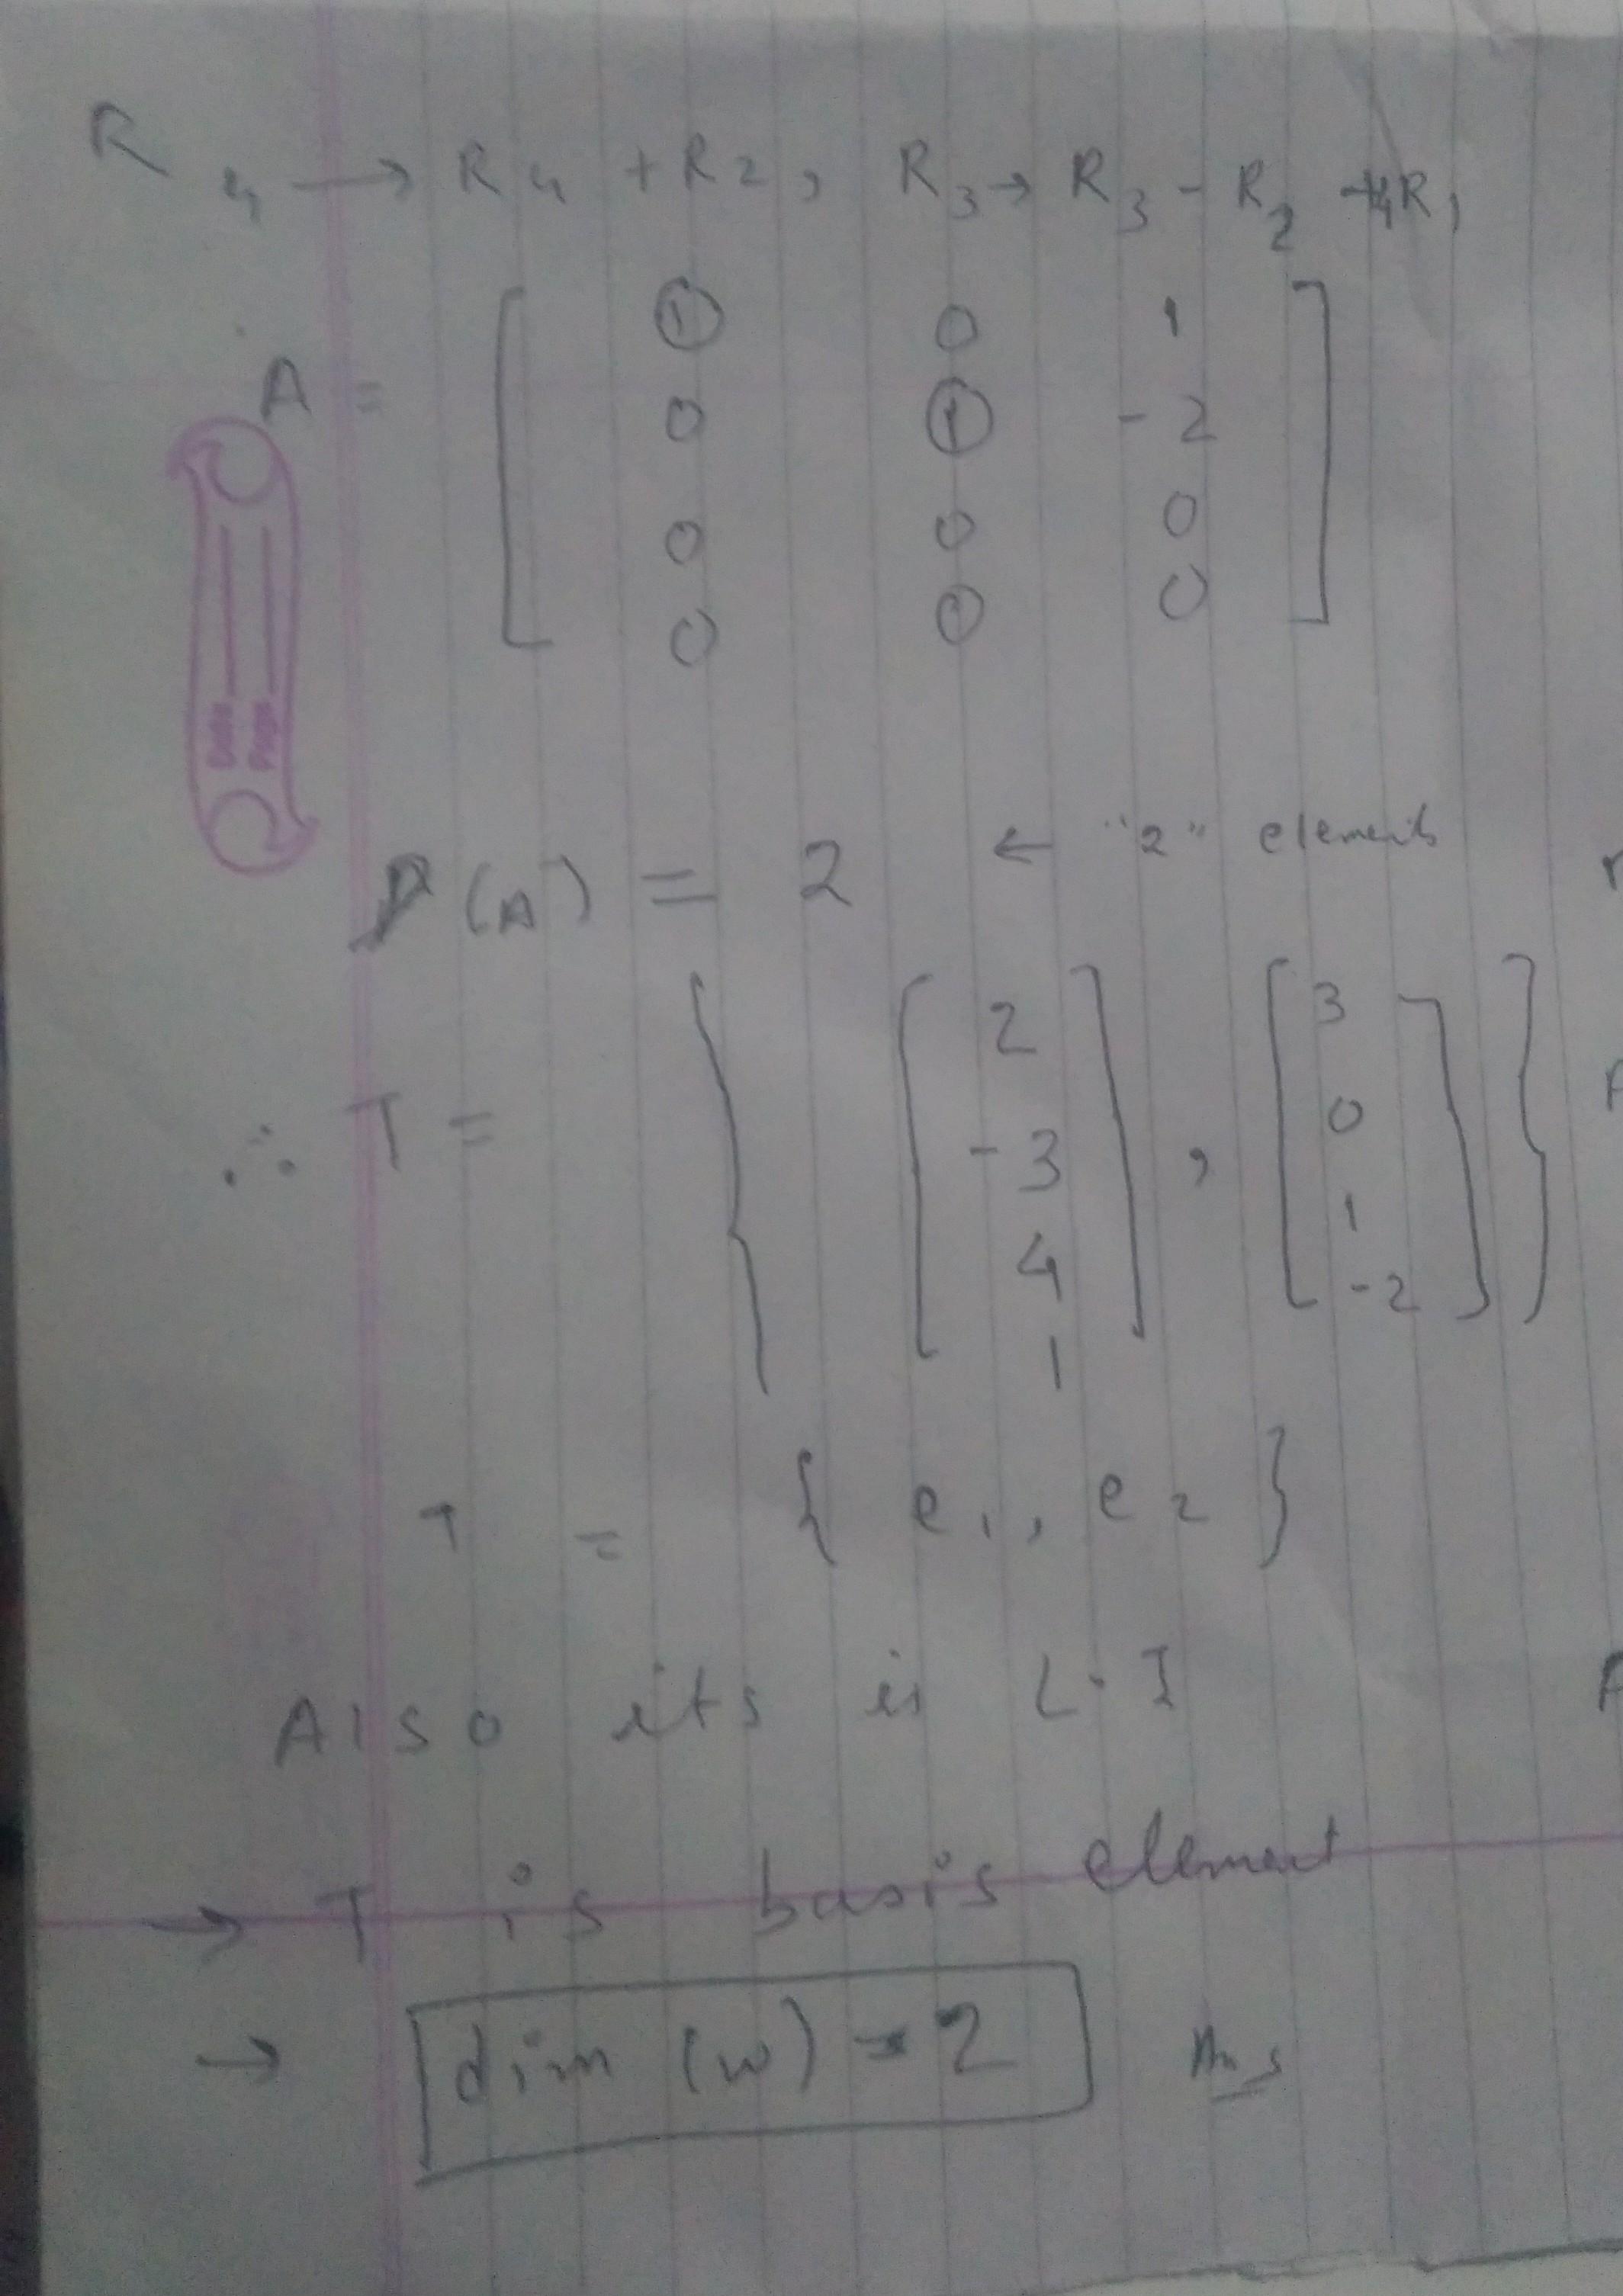 R₄ → R₄ + R₂, R₃ → R₃ - R₂ R₁
A = [ 1 0 1
0 1 -2
0 0 0
0 0 ]
(A) = 2 ← "2" elements
∴ T = { [ 2 -3 4 1 ] , [ 3 0 1 -2 ] }
T = { e₁, e₂ }
Also its is L.I
→ T is basis element
→ dim (w) = 2 Ans
Date
Page